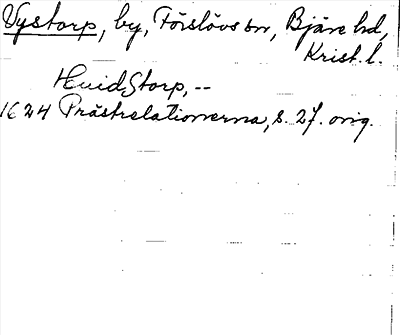 Vystorp, by, Förslövs sn, Bjäre hd,
Krist. l.
HuidStorp, --
1624 Prästrelationerna, s. 27. orig.